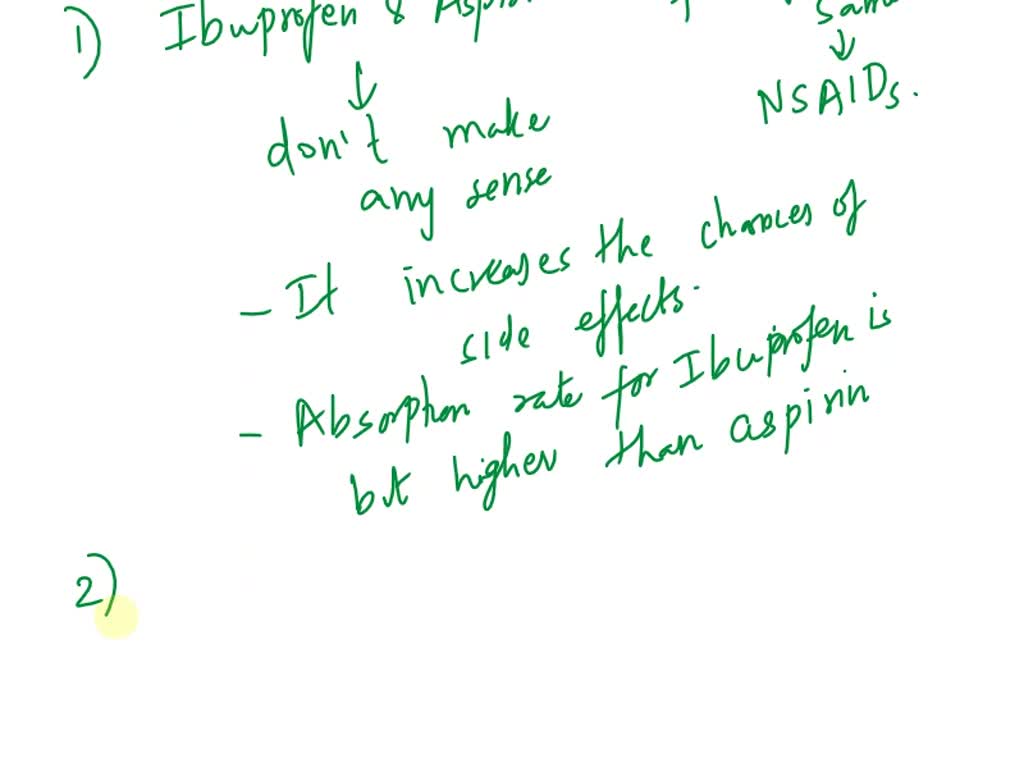 1) Ibuprofen & Aspi
same
NSAIDs.
don't make
any sense
- It increases the chances of
side effects.
- Absorption rate for Ibuprofen is
but higher than aspirin
2)